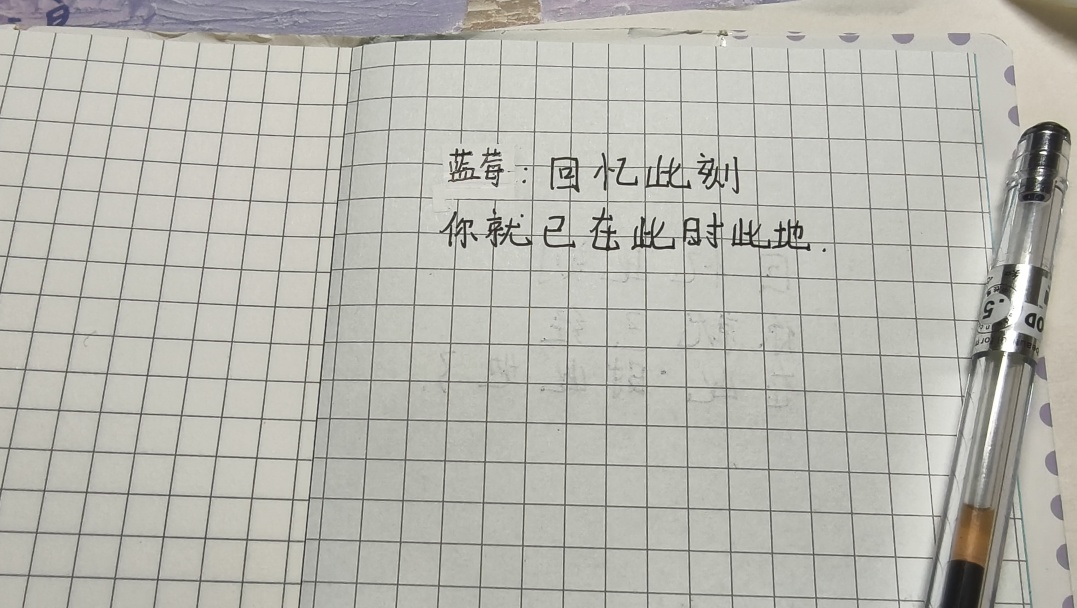 蓝莓：回忆此刻
你就已在此时此地.